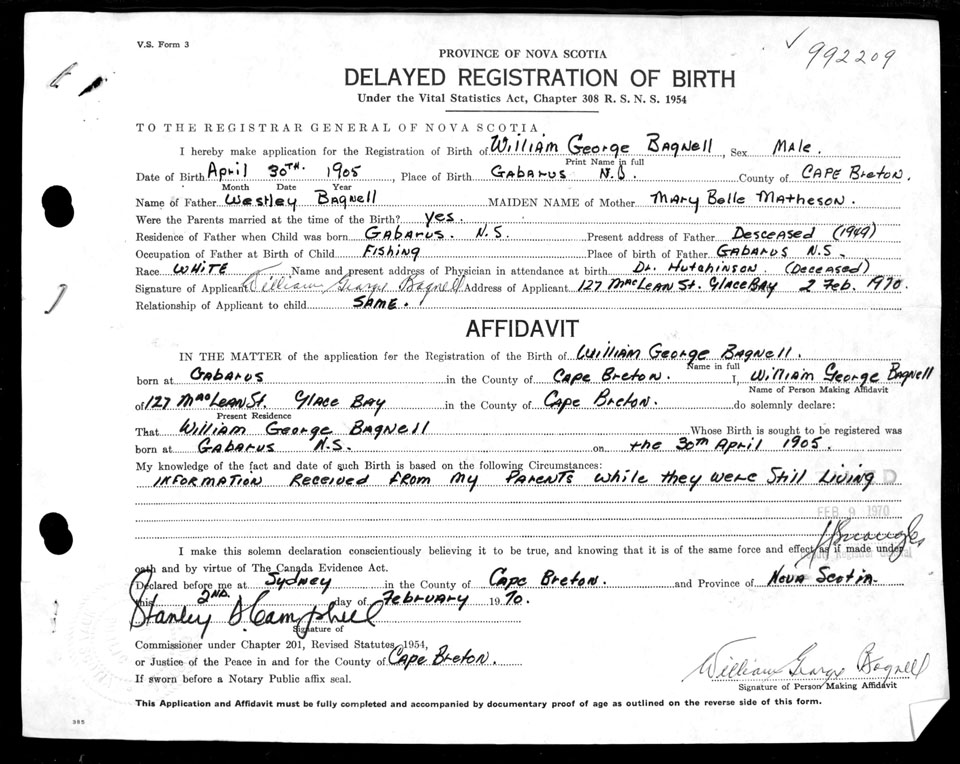 V.S. Form 3
992209
PROVINCE OF NOVA SCOTIA
DELAYED REGISTRATION OF BIRTH
Under the Vital Statistics Act, Chapter 308 R. S. N. S. 1954
TO THE REGISTRAR GENERAL OF NOVA SCOTIA,
I hereby make application for the Registration of Birth of William George Bagnell, Sex Male.
Print Name in full
Date of Birth April 30TH. 1905, Place of Birth Gabarus N.S County of Cape Breton.
Month Date Year
Name of Father Westley Bagnell MAIDEN NAME of Mother Mary Belle Matheson.
Were the Parents married at the time of the Birth? yes.
Residence of Father when Child was born Gabarus. N.S. Present address of Father Desceased (1949)
Occupation of Father at Birth of Child Fishing Place of birth of Father Gabarus N.S.
Race White Name and present address of Physician in attendance at birth Dr. Hutchinson (Deceased)
Signature of Applicant William George Bagnell Address of Applicant 127 MacLean St. Glace Bay 2 Feb. 1970.
Relationship of Applicant to child Same.
AFFIDAVIT
IN THE MATTER of the application for the Registration of the Birth of William George Bagnell.
Name in full
born at Gabarus in the County of Cape Breton. I, William George Bagnell
Name of Person Making Affidavit
of 127 MacLean St. Glace Bay in the County of Cape Breton. do solemnly declare:
Present Residence
That William George Bagnell Whose Birth is sought to be registered was
born at Gabarus N.S. on the 30th April 1905.
My knowledge of the fact and date of such Birth is based on the following Circumstances:
Information Received from my Parents while they were Still Living
FEB 9 1970
I make this solemn declaration conscientiously believing it to be true, and knowing that it is of the same force and effect as if made under
oath and by virtue of The Canada Evidence Act.
Declared before me at Sydney in the County of Cape Breton. and Province of Nova Scotia.
this 2ND. day of February 1970.
Stanley A Campbell
Signature of
Commissioner under Chapter 201, Revised Statutes 1954,
or Justice of the Peace in and for the County of Cape Breton.
If sworn before a Notary Public affix seal.
William George Bagnell
Signature of Person Making Affidavit
This Application and Affidavit must be fully completed and accompanied by documentary proof of age as outlined on the reverse side of this form.
385